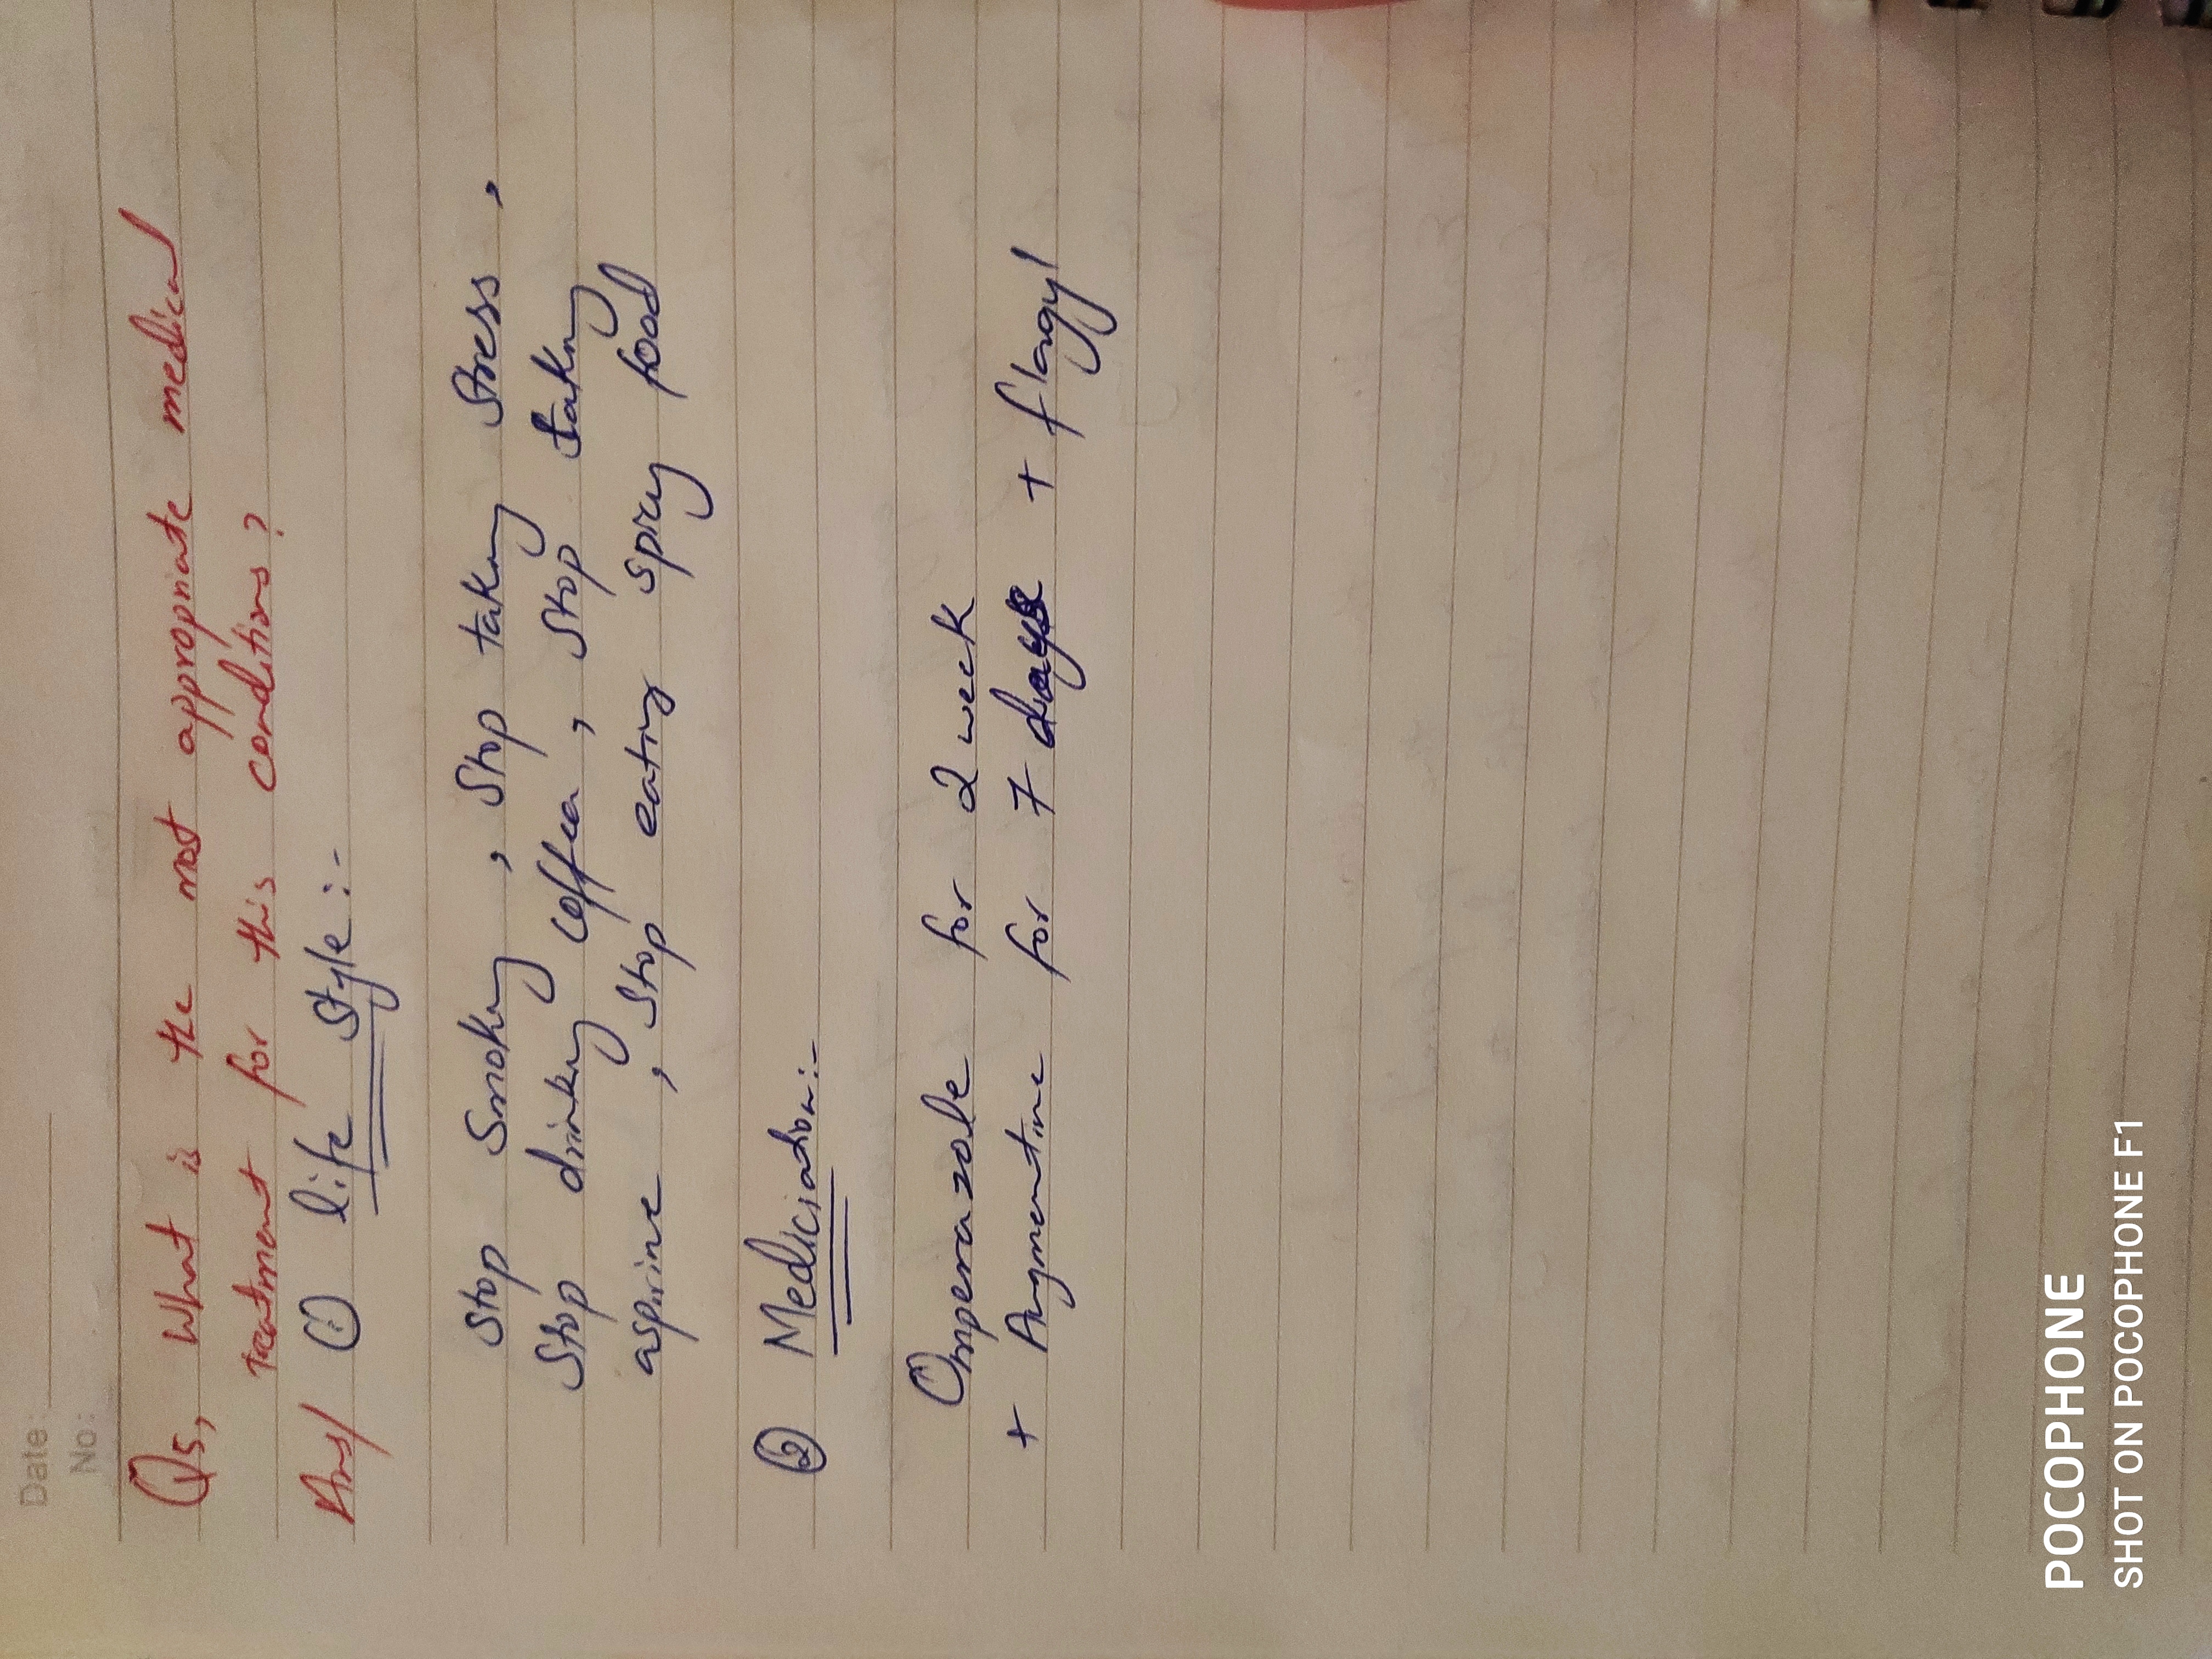 Date:
No:
Q5, What is the most appropriate medical
treatment for this conditions?
Ans/ ① life style:-
Stop Smoking, Stop taking Stress,
Stop drinking coffea, Stop taking
asprine, Stop eating spicy food
② Mediciation:-
Omperazole for 2 week
+ Augmentine for 7 days + flagyl
POCOPHONE
SHOT ON POCOPHONE F1